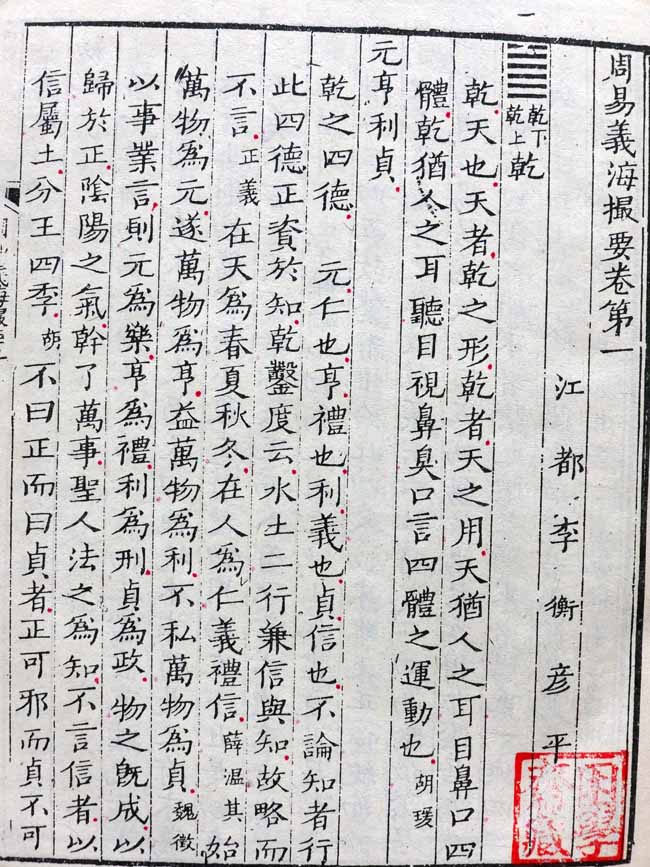 周易義海撮要卷第一
江都李衡彥平
乾下乾上乾
乾天也天者乾之形乾者天之用天猶人之耳目鼻口四
體乾猶人之耳聽目視鼻臭口言四體之運動也胡瑗
元亨利貞
乾之四德 元仁也亨禮也利義也貞信也不論知者行
此四德正資於知乾鑿度云水土二行兼信與知故略而
不言正義 在天為春夏秋冬在人為仁義禮信薛温其 始
萬物為元遂萬物為亨益萬物為利不私萬物為貞魏徵
以事業言則元為樂亨為禮利為刑貞為政 物之既成以
歸於正陰陽之氣幹了萬事聖人法之為知不言信者以
信屬土分王四季胡 不曰正而曰貞者正可邪而貞不可